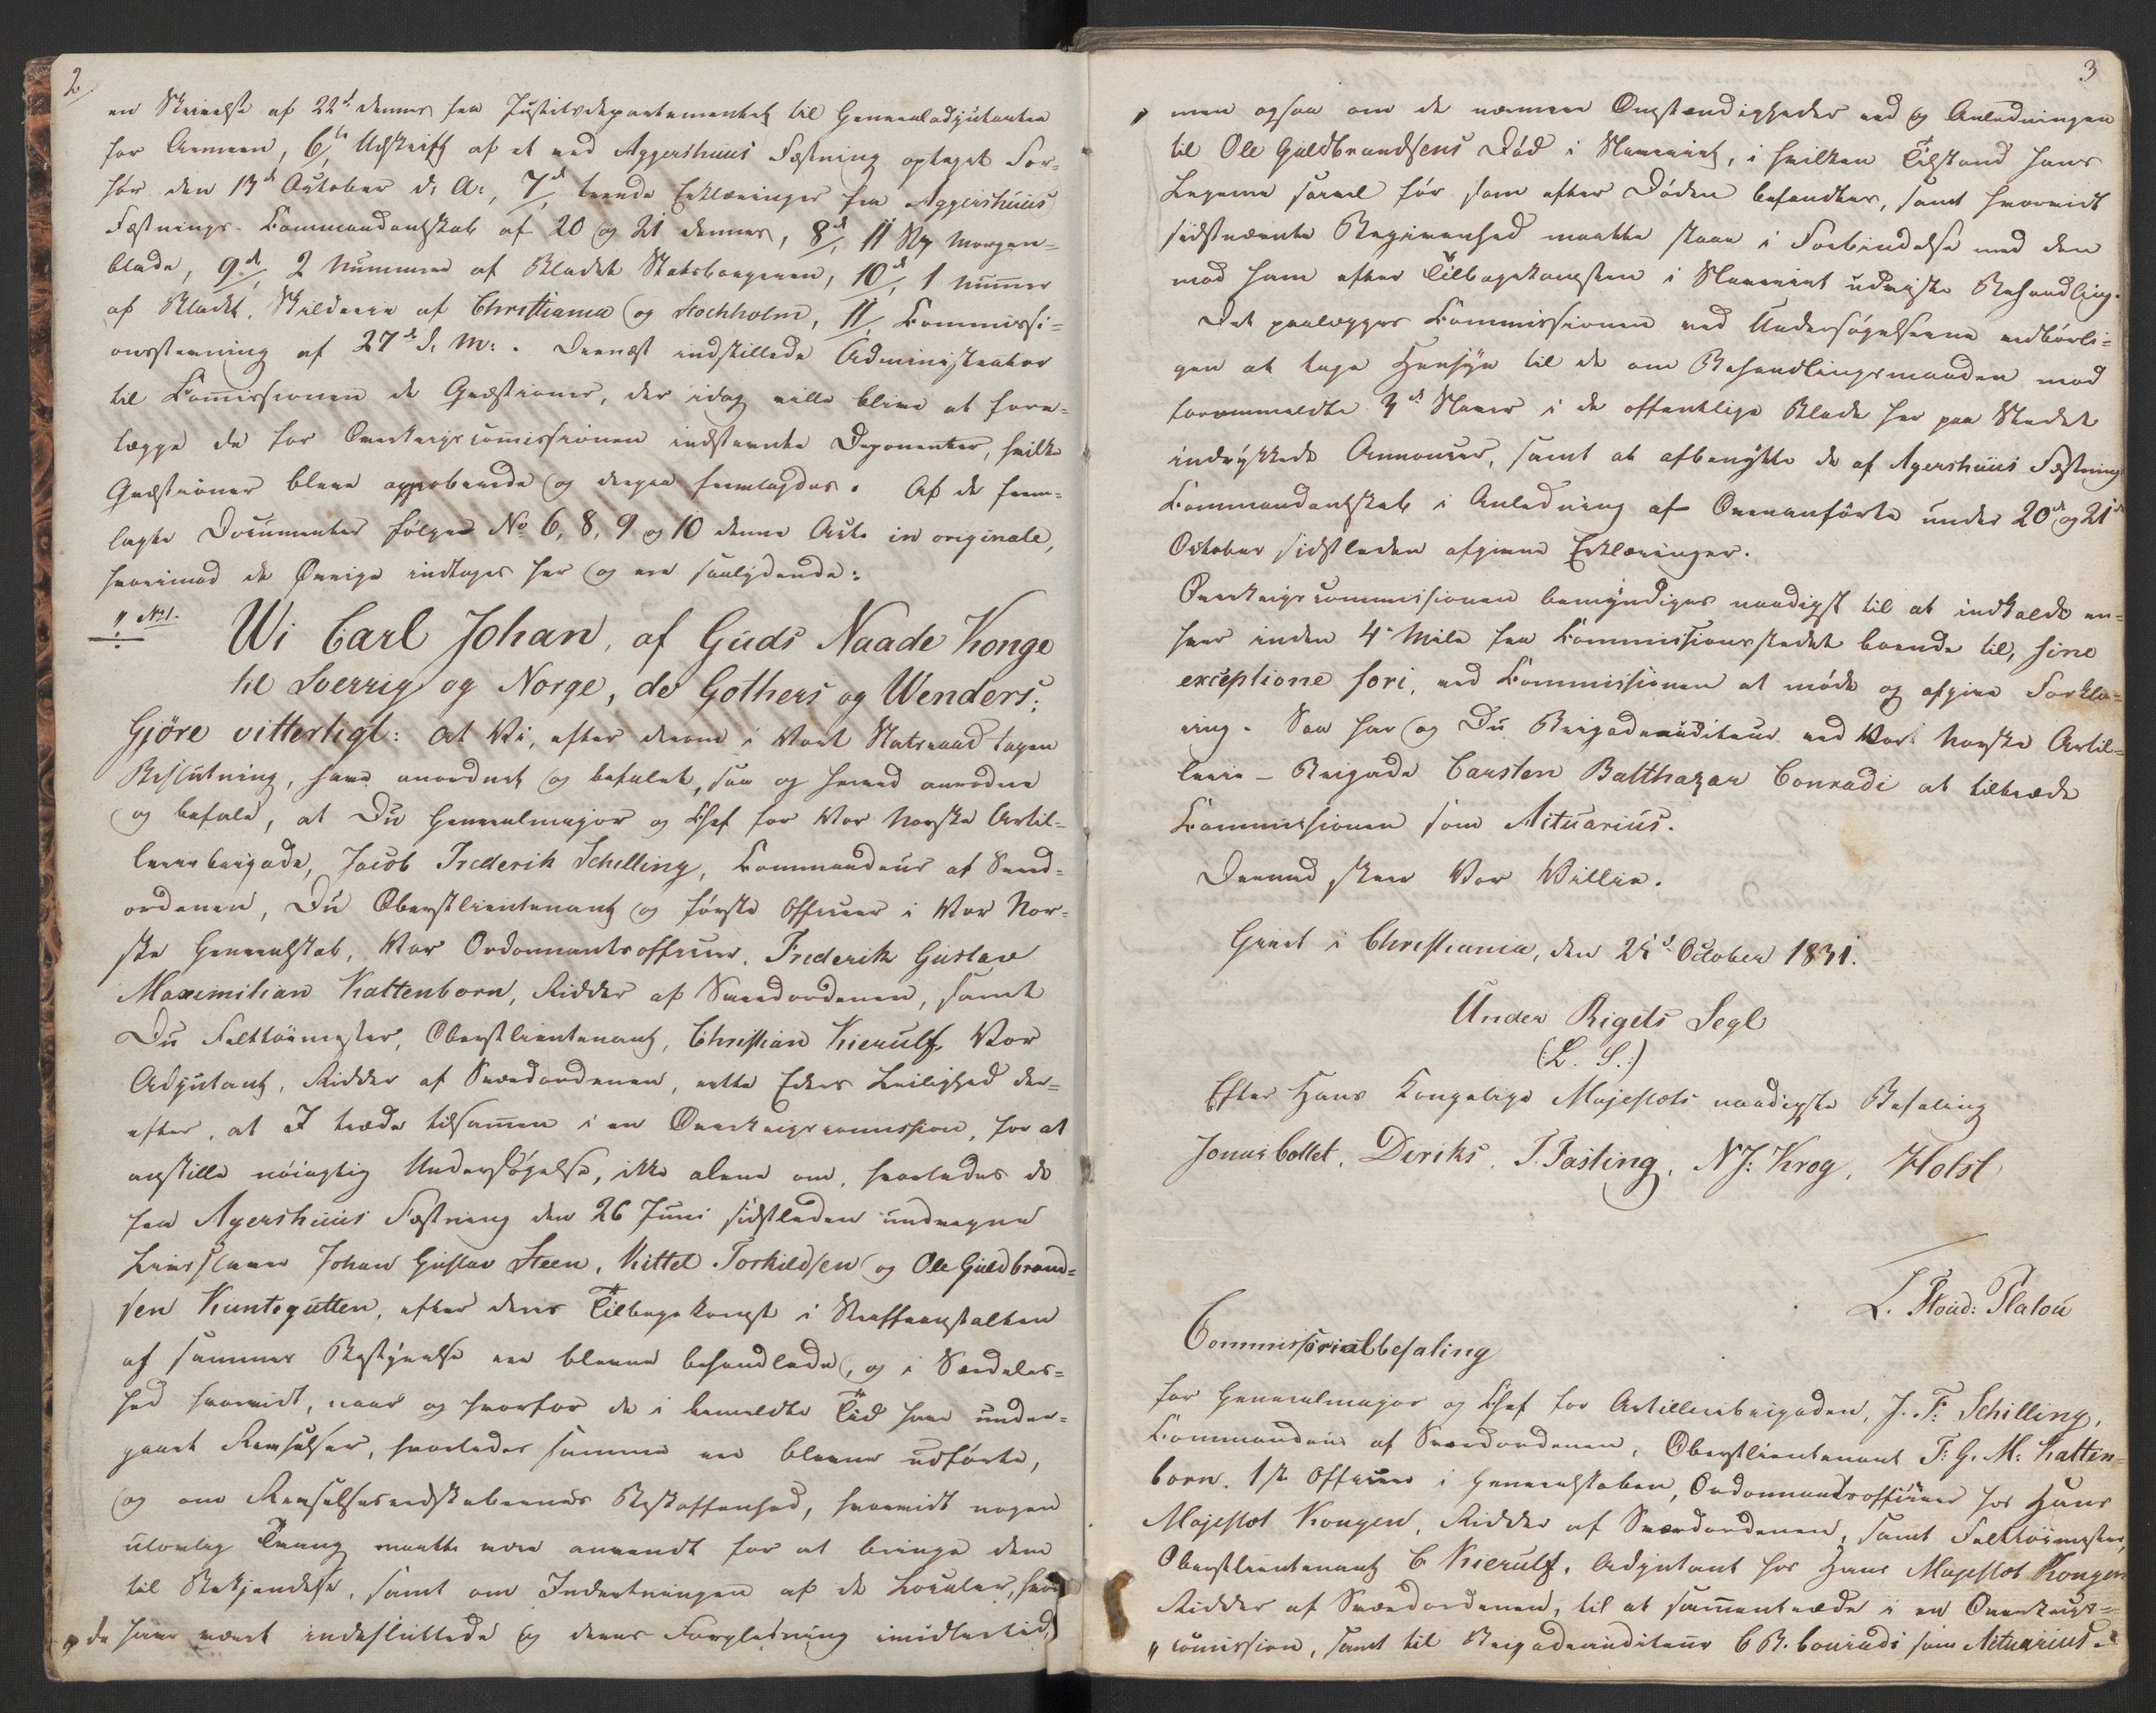 2/
en Skrivelse af 22d. dennes fra Justitsdepartementet til Generaladjutanten
for Armeen, 6te/ Udskrift af et ved Aggershuus Fæstning optaget For-
hør den 13d. October d. A:, 7d/ tvende Erklæringer fra Aggershuus
Fæstnings-Commandantskab af 20 og 21 dennes, 8d/, 11 St Morgen-
blade, 9de/, 2 Nummere af Bladet Statsborgeren, 10d/, 1 Numer
af Bladet, Skilderie af Christiania og Stockholm, 11/ Commissi-
onsstevning af 27de d. M:. Dernæst indstillede Administrator
til Comissionen de Qvæstioner, der idag ville blive at fore-
lægge de for Overkrigscomissionen indstevnte Deponenter, hvilke
Qvæstioner bleve approberede og derpaa fremlagdes. Af de frem-
lagte Documenter følger No 6, 8, 9 og 10 denne Act in originale,
hvorimod de Øvrige indtages her og ere saalydende:
" No 1.
Wi Carl Johan, af Guds Naade Konge
til Sverrig og Norge, de Gothers og Wenders;
Gjöre vitterligt: At Vi, efter derom i Vort Statsraad tagen
Beslutning, have anordnet og befalet, saa og herved anordne
og befale, at Du Generalmajor og Chef for Vor Norske Artil-
leriebrigade, Jacob Frederik Schilling, Commandeur af Sværd-
ordenen, Du Oberstlieutenant og første Officeer i Vor Nor-
ske Generalstab, Vor Ordonnantsofficeer, Frederik Gustav
Maximilian Kaltenborn, Ridder af Sværdordenen, samt
Du Felttøimester, Oberstlieutenant, Christian Kierulf, Vor
Adjutant, Ridder af Sværdordenen, rette Eders Leilighed der-
efter, at I træde tilsamen i en Overkrigscomission, for at
anstille nøiagtig Undersøgelse, ikke alene om, hvorledes de
fra Agershuus Fæstning den 26 Juni sidstleden undvegne
Livsslaver Johan Gustav Steen, Kittel Torkildsen og Ole Guldbrand-
sen Kuntegutten, efter deres Tilbagekomst i Straffeanstalten
af sammes Bestyrelse ere blevne behandlede, og i Særdeles-
hed hvorvidt, naar og hvorfor de i bemeldte Tid have under-
gaaet Revselser, hvorledes samme ere blevne udførte,
og om Revselsesredskabernes Beskaffenhed, hvorvidt nogen
ulovlig Tvang maatte være anvendt for at bringe dem
til Bekjendelse, samt om Indretningen af de Localer, hvor
" de have været indesluttede og deres Forpleining imidlertid,
3
" men ogsaa om de nærmere Omstændigheder ved og Anledningen
til Ole Guldbrandsens Død i Slaveriet, i hvilken Tilstand hans
Legeme saavel før som efter Døden befandtes, samt hvorvidt
sidstnævnte Begivenhed maatte staae i Forbindelse med den
mod ham efter Tilbagekomsten i Slaveriet udviste Behandling.
Det paalægges Commissionen ved Undersøgelserne vedbørli-
gen at tage Hensyn til de om Behandlingsmaaden mod
forommeldte 3de Slaver i de offentlige Blade her paa Stedet
indrykkede Annoncer, samt at afbenytte de af Agershuus Fæstning
Commandantskab i Anledning af Ovenanførte under 20de og 21de
October sidstleden afgivne Erklæringer.
Overkrigscommissionen bemyndiges naadigst til at indkalde en-
hver inden 4 Mile fra Commissionsstedet boende til, sine
exceptione fori, ved Commissionen at møde og afgive Forkla-
ring. Saa har og Du Brigadeauditeur ved Vor Norske Artil-
lerie-Brigade Carsten Balthazar Conradi at tiltræde
Commissionen som Actuarius.
Derved skeer Vor Villie.
Givet i Christiania, den 25d. October 1831.
Under Rigets Segl
(L. S.)
Efter Hans Kongelige Majestæts naadigste Befaling
Jonas Collet. Diriks. T. Fasting. N J: Krog. Holst
L. Stoud: Platou
Commissorialbefaling
for Generalmajor og Chef for Artilleribrigaden, J. F: Schilling,
Commandeur af Sværdordenen, Oberstlieutenant F: G. M: Kalten-
born, 1ste Officeer i Generalstaben, Ordonnantsofficeer hos Hans
Majestæt Kongen, Ridder af Sværdordenen, samt Felttøimester,
Oberstlieutenant C Kierulf, Adjutant hos Hans Majestæt Kongen
Ridder af Sværdordenen, til at samentræde i en Overkrigs-
" comission, samt til Brigadeauditeur C B. Conradi som Actuarius.